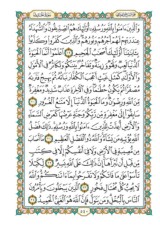 والذين ءامنوا بالله ورسله أولئك هم الصديقون والشهداء
عند ربهم لهم أجرهم ونورهم والذين كفروا وكذبوا
بئايتنا أولئك أصحب الجحيم اعلموا أنما الحيوة
الدنيا لعب ولهو وزينة وتفاخر بينكم وتكاثر في الأمول
والأولد كمثل غيث أعجب الكفار نباته ثم يهيج فترىه
مصفرا ثم يكون حطما وفي الأخرة عذاب شديد ومغفرة
من الله ورضون وما الحيوة الدنيا إلا متع الغرور
سابقوا إلى مغفرة من ربكم وجنة عرضها كعرض السماء
والأرض أعدت للذين ءامنوا بالله ورسله ذلك فضل الله
يؤتيه من يشاء والله ذو الفضل العظيم ما أصاب
من مصيبة في الأرض ولا في أنفسكم إلا في كتب
من قبل أن نبرأها إن ذلك على الله يسير لكيلا
تأسوا على ما فاتكم ولا تفرحوا بما ءاتىكم والله
لا يحب كل مختال فخور الذين يبخلون ويأمرون
الناس بالبخل ومن يتول فإن الله هو الغني الحميد